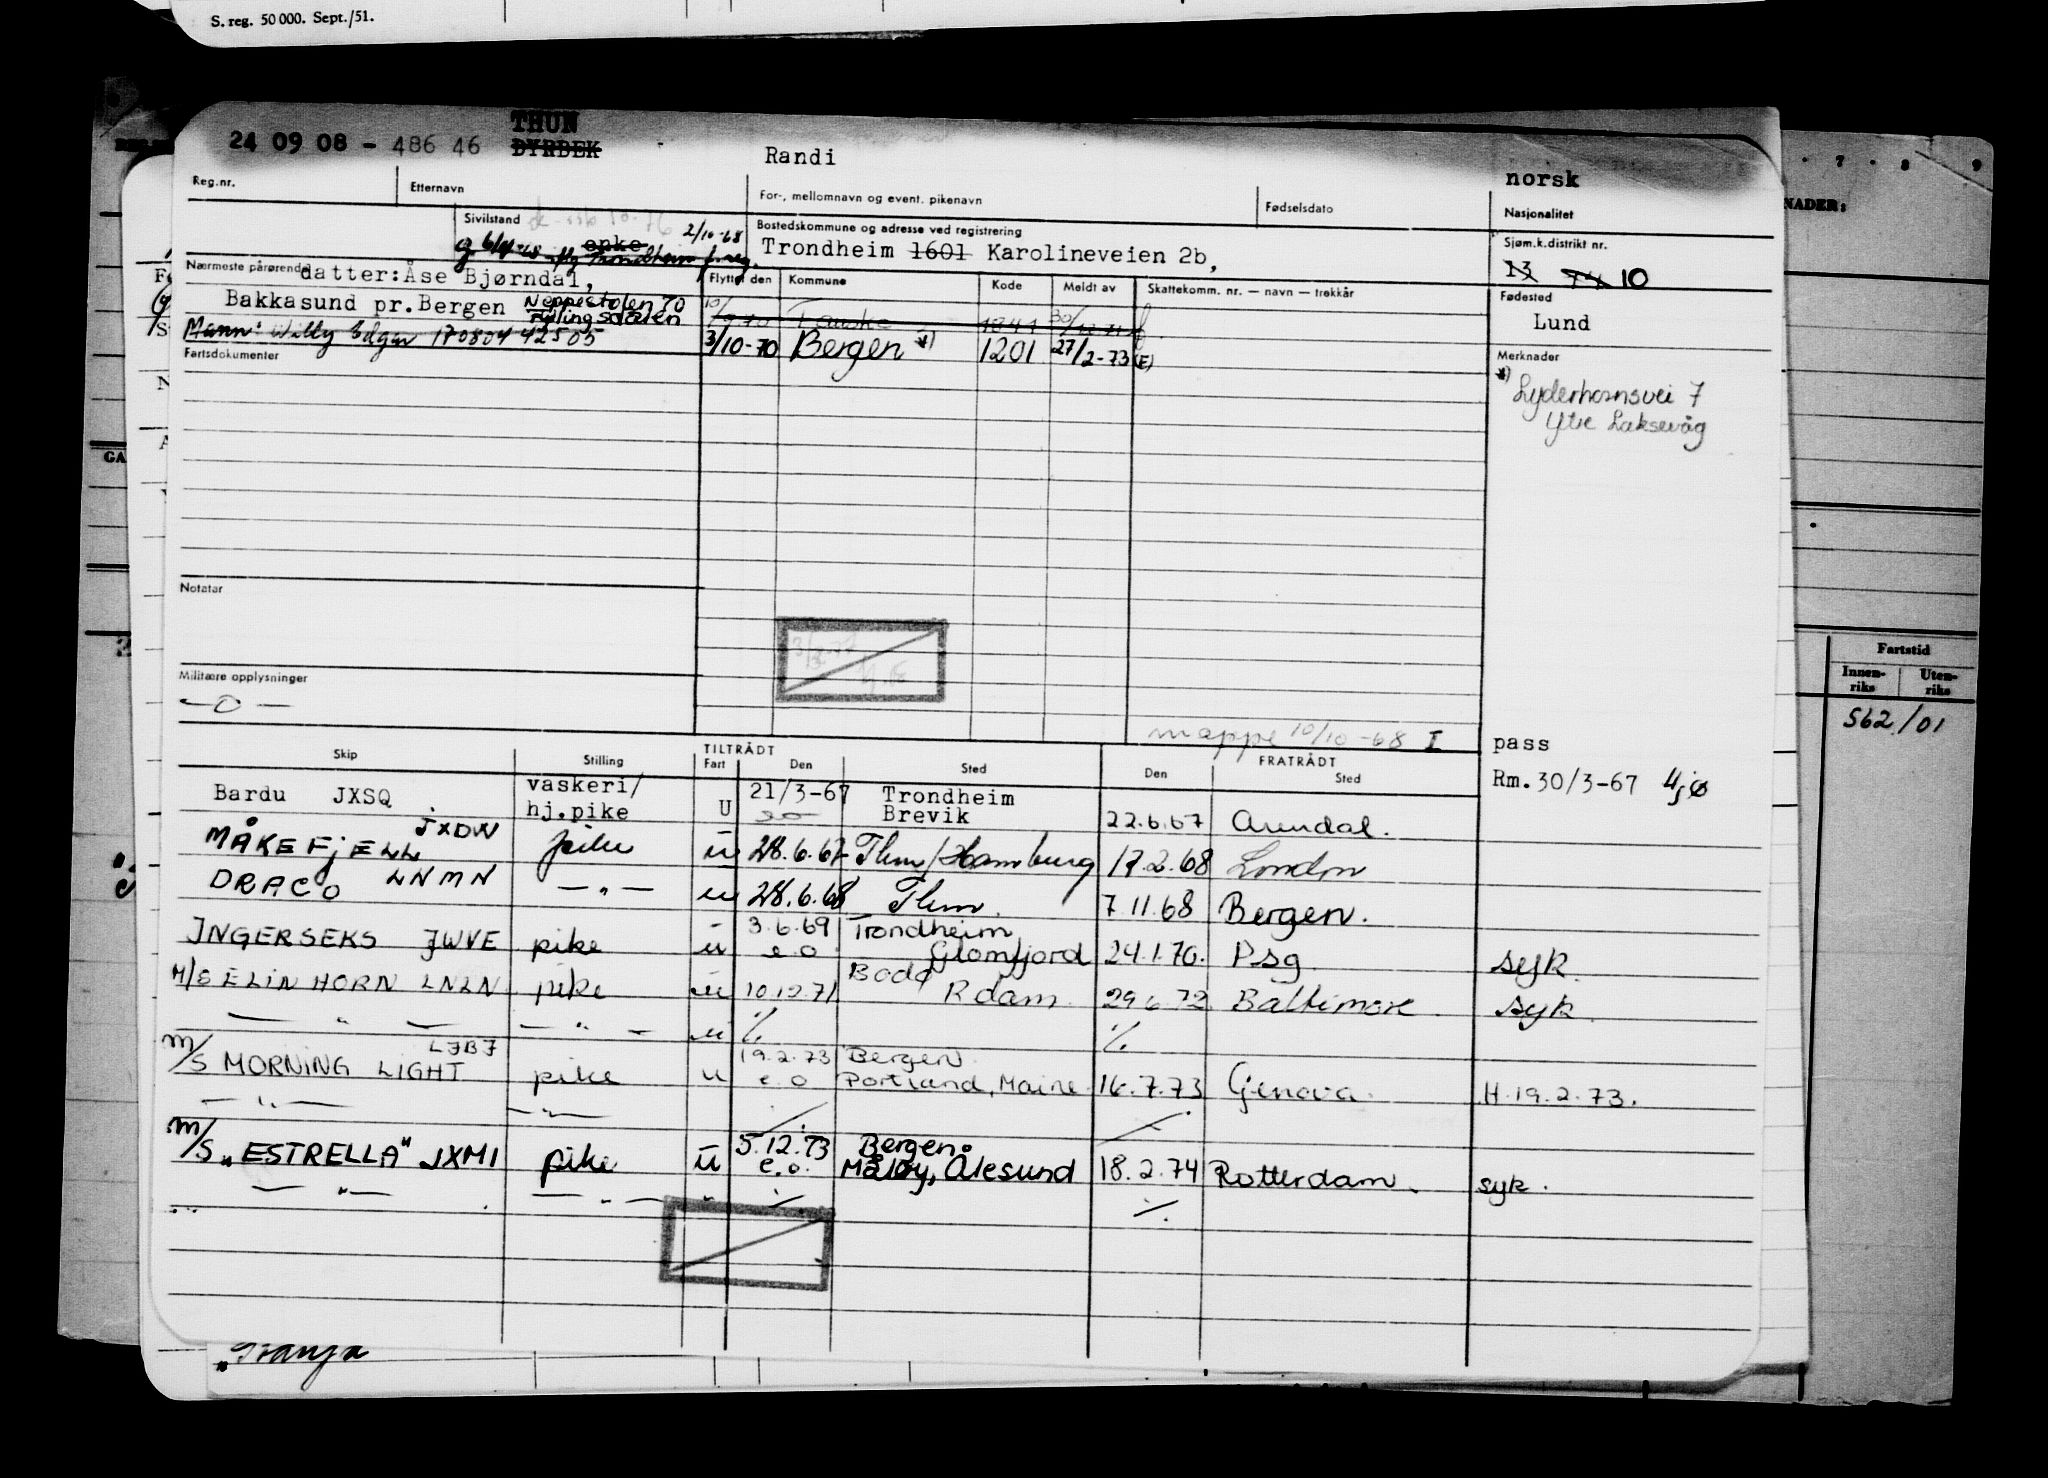 S. reg. 50 000. Sept./51.
24 09 08 - 486 46 THUN
DYRBEK
Randi
norsk
Reg.nr.
Etternavn
For-, mellomnavn og event. pikenavn
Fødselsdato
Nasjonalitet
Sivilstand
enke
2/10-68
Bostedskommune og adresse ved registrering
Trondheim 1601 Karolineveien 2b,
Sjøm.k.distrikt nr.
13 10
Nærmeste pårørende
datter: Åse Bjørndal,
Bakkasund pr. Bergen Neppestolen 70
Fyllingsdalen
Mann: Willy Edgar 170804 42505
Flyttet den
Kommune
Kode
Meldt av
Skattekomm. nr. — navn — trekkår
Fødested
Lund
3/10-70 Bergen *) 1201 27/2-73 (E)
Fartsdokumenter
Merknader
*) Lyderhornsvei 7
Ytre Laksevåg
Notater
Militære opplysninger
— 0 —
mappe 10/10-68 I
pass
Rm. 30/3-67
Skip
Stilling
TILTRÅDT
Fart
Den
Sted
FRATRÅDT
Den
Sted
Bardu JXSQ vaskeri/ hj.pike U 21/3-67 Trondheim Brevik 22.6.67 Arendal.
MÅKEFJELL JXDW pike u 28.6.67 Thm/Hamburg 17.2.68 London
DRACO LNMN — " — u 28.6.68 Thm. 7.11.68 Bergen.
INGERSEKS JWVE pike u 3.6.69 e.o Trondheim Glomfjord 24.1.70. Psg syk.
M/S ELIN HORN LNLN pike u 10.12.71 Bodø Rdam. 29 6 72 Baltimore. syk.
— " — — " — u ./. ./.
M/S MORNING LIGHT LJBJ pike u 19.2.73 e.o Bergen Portland, Maine 16.7.73 Genova. H.19.2.73.
— " — — " — ./. ./.
M/S "ESTRELLA" JXMI pike u 5.12.73 e.o. Bergen. Måløy, Ålesund 18.2.74 Rotterdam. syk.
— " — — " — " ./. ./.
7 8 9
Fartstid
Innen-riks
Uten-riks
562/01